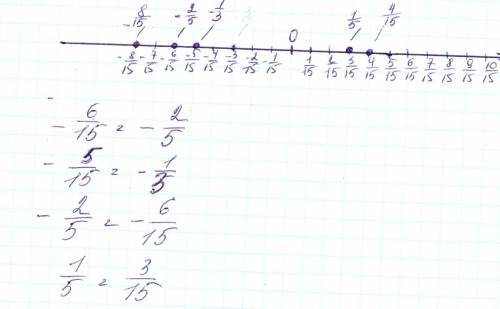 -8/15 -2/5 -1/3 0 1/5 4/15
-8/15 -7/15 -6/15 -5/15 -4/15 -3/15 -2/15 -1/15 1/15 2/15 3/15 4/15 5/15 6/15 7/15 8/15 9/15 10/15
-6/15 = -2/5
-5/15 = -1/3
-2/5 = -6/15
1/5 = 3/15